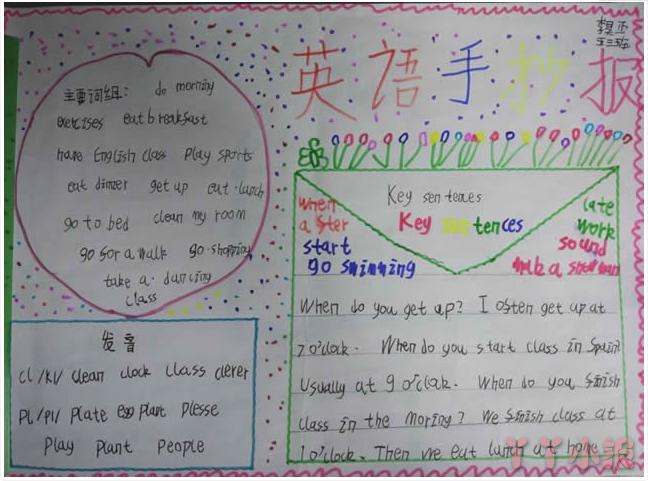 英语手抄报
主要词组: do morning
exercises eat breakfast
have English class play sports
eat dinner get up eat lunch
go to bed clean my room
go for a walk go shopping
take a dancing
class
发音
cl /kl/ clean clock class clerer
PL /Pl/ Plate eggplant Plesse
Play Plant People
Key sentences
Key sentences
when
after
start
go swimming
late
work
sound
When do you get up? I often get up at
7 o'clock. When do you start class in Spain?
Usually at 9 o'clok. When do you finish
class in the moring? We finish class at
1 o'clock. Then we eat lunch at home
丫丫小报